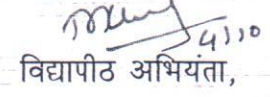 4/10
विद्यापीठ अभियंता,